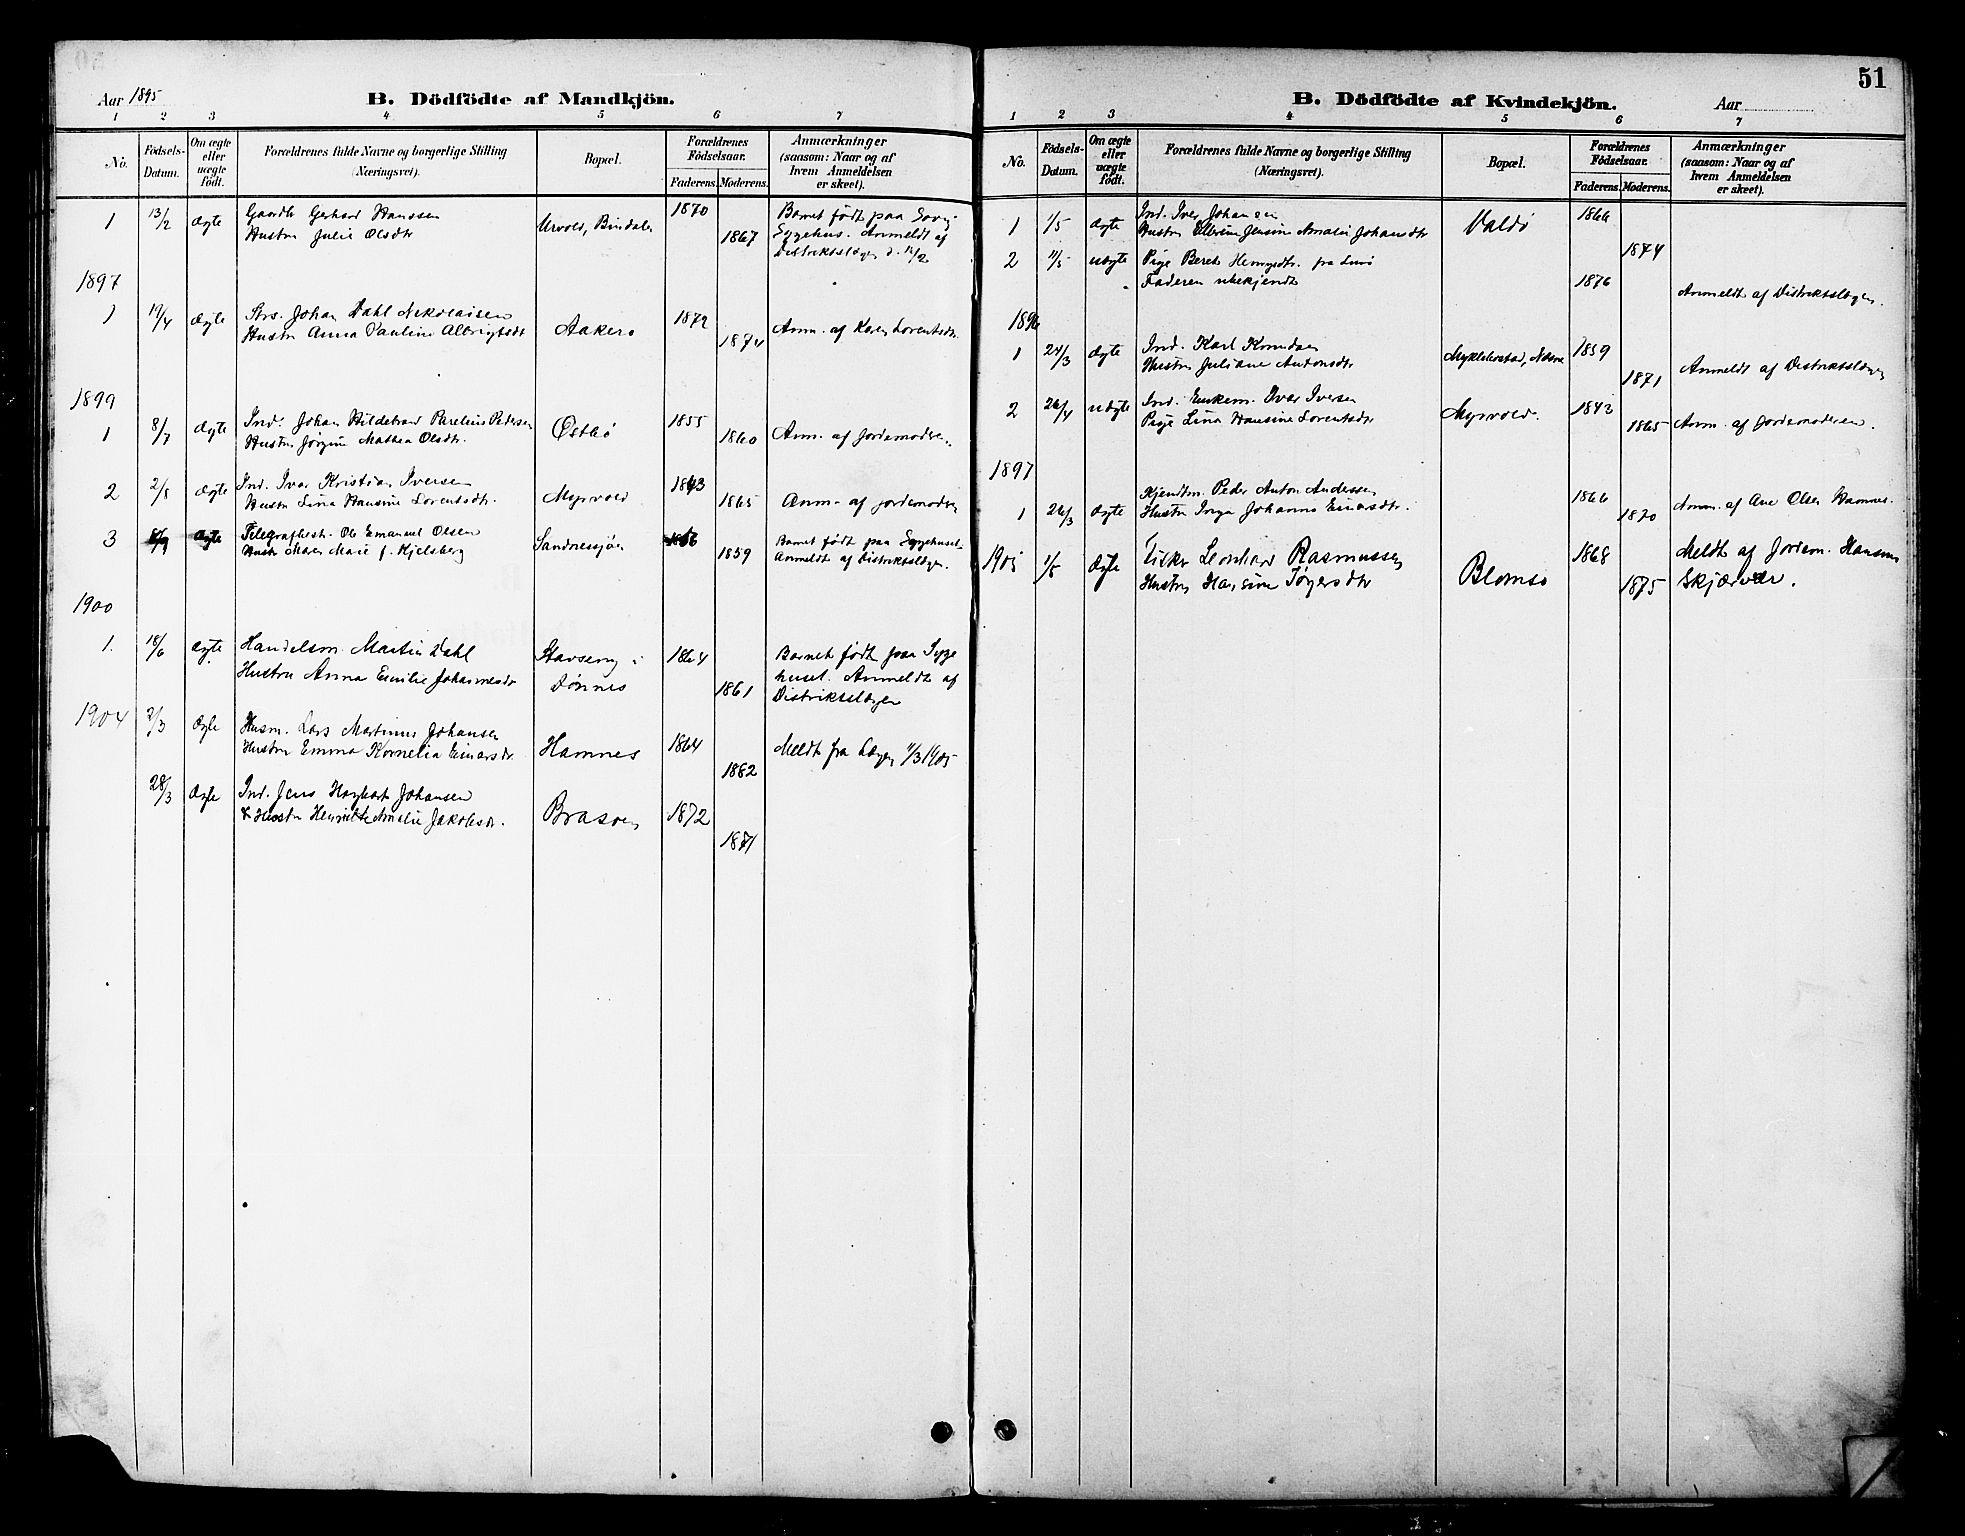 51
Aar 1895
B. Dödfödte af Mandkjön.
1 2 3 4 5 6 7
No.
Födsels-Datum.
Om ægte eller uægte födt.
Forældrenes fulde Navne og borgerlige Stilling (Næringsvei).
Bopæl.
Forældrenes Födselsaar.
Faderens. Moderens.
Anmærkninger (saasom: Naar og af hvem Anmeldelsen er skeet).
1 13/2 Ægte Gaardb Gerhard Hanssen Urvold, Bindalen 1870 Barnet født paa
Hustru Julie Olsdtr 1867 Sygehus. Anmeldt af
Distriktslægen d.
1897
1 19/4 Ægte Strs. Johan Dahl Nikolaisen Aakerø 1872 Anm. af Karen Lorentsdtr.
Hustru Anna Pauline Albrigtsdtr 1874
1899
1 8/7 Ægte Ind. Johan Hildebrad Parelius Pedersen Østbø 1855 Anm. af Jordemoderen
Hustru Jørgine Mathea Olsdtr. 1860
2 2/8 Ægte Ind. Ivar Kristian Iversen Myrvold 1843 Anm. af jordemoderen
Hustru Lina Hansine Lorentsdtr. 1865
3 Ægte Telegrafbest. Ole Emanuel Olsen Sandnessjøen 1866 Barnet født paa Sygehuset.
Hustr Maren Marie f. Kjelsberg 1859 Anmeldt af Distriktslægen.
1900
1. 18/6 Ægte Handelsm. Martin Dahl Stavseng i 1864 Barnet født paa Syge
Hustru Anna Emilie Johannesdtr Dønnes 1861 huset. Anmeldt af
Distriktslægen
1904 2/3 Ægte Husm. Lars Martinus Johansen Hamnes 1864 Meldt fra Lægen 11/3 1905
Hustru Emma Kornelia Einarsdtr. 1862
28/3 Ægte Ind. Jens Hagbart Johansen Brasøen 1872
& Hustru Henriette Amalie Jakobsdtr. 1871
B. Dödfödte af Kvindekjön.
Aar
1 2 3 4 5 6 7
No.
Födsels-Datum.
Om ægte eller uægte födt.
Forældrenes fulde Navne og borgerlige Stilling (Næringsvei).
Bopæl.
Forældrenes Födselsaar.
Faderens. Moderens.
Anmærkninger (saasom: Naar og af hvem Anmeldelsen er skeet).
1 1/5 Ægte Ind. Iver Johansen Valdø 1866
Hustru Jensine Amalie Johansdtr 1874
2 11/5 uægte Pige Beret fra
Faderen ubekjendt 1876 Anmeldt af Distriktslægen.
1896
1 24/3 Ægte Ind. Karl Knudsen Myklebostad, Nesne 1859 Anmeldt af Distriktslægen
Hustru Juliane Antonsdtr 1871
2 26/4 uægte Ind. Enkem. Ivar Iversen Myrvold. 1843
Pige Lina Hansine Lorentsdtr 1865 Anm. af Jordemoderen.
1897
1 26/3 Ægte Kjendtm. Peder Anton Anderssen 1866 Anm. af Ane Olsen Hamnes.
Hustru Inga Johanna Einarsdtr. 1870
1905 1/5 Ægte Fisker Leonhard Rasmussen Blomsø 1868 Meldt af Jordem. Hansens
Hustru Hansine 1875 Skjærvær.